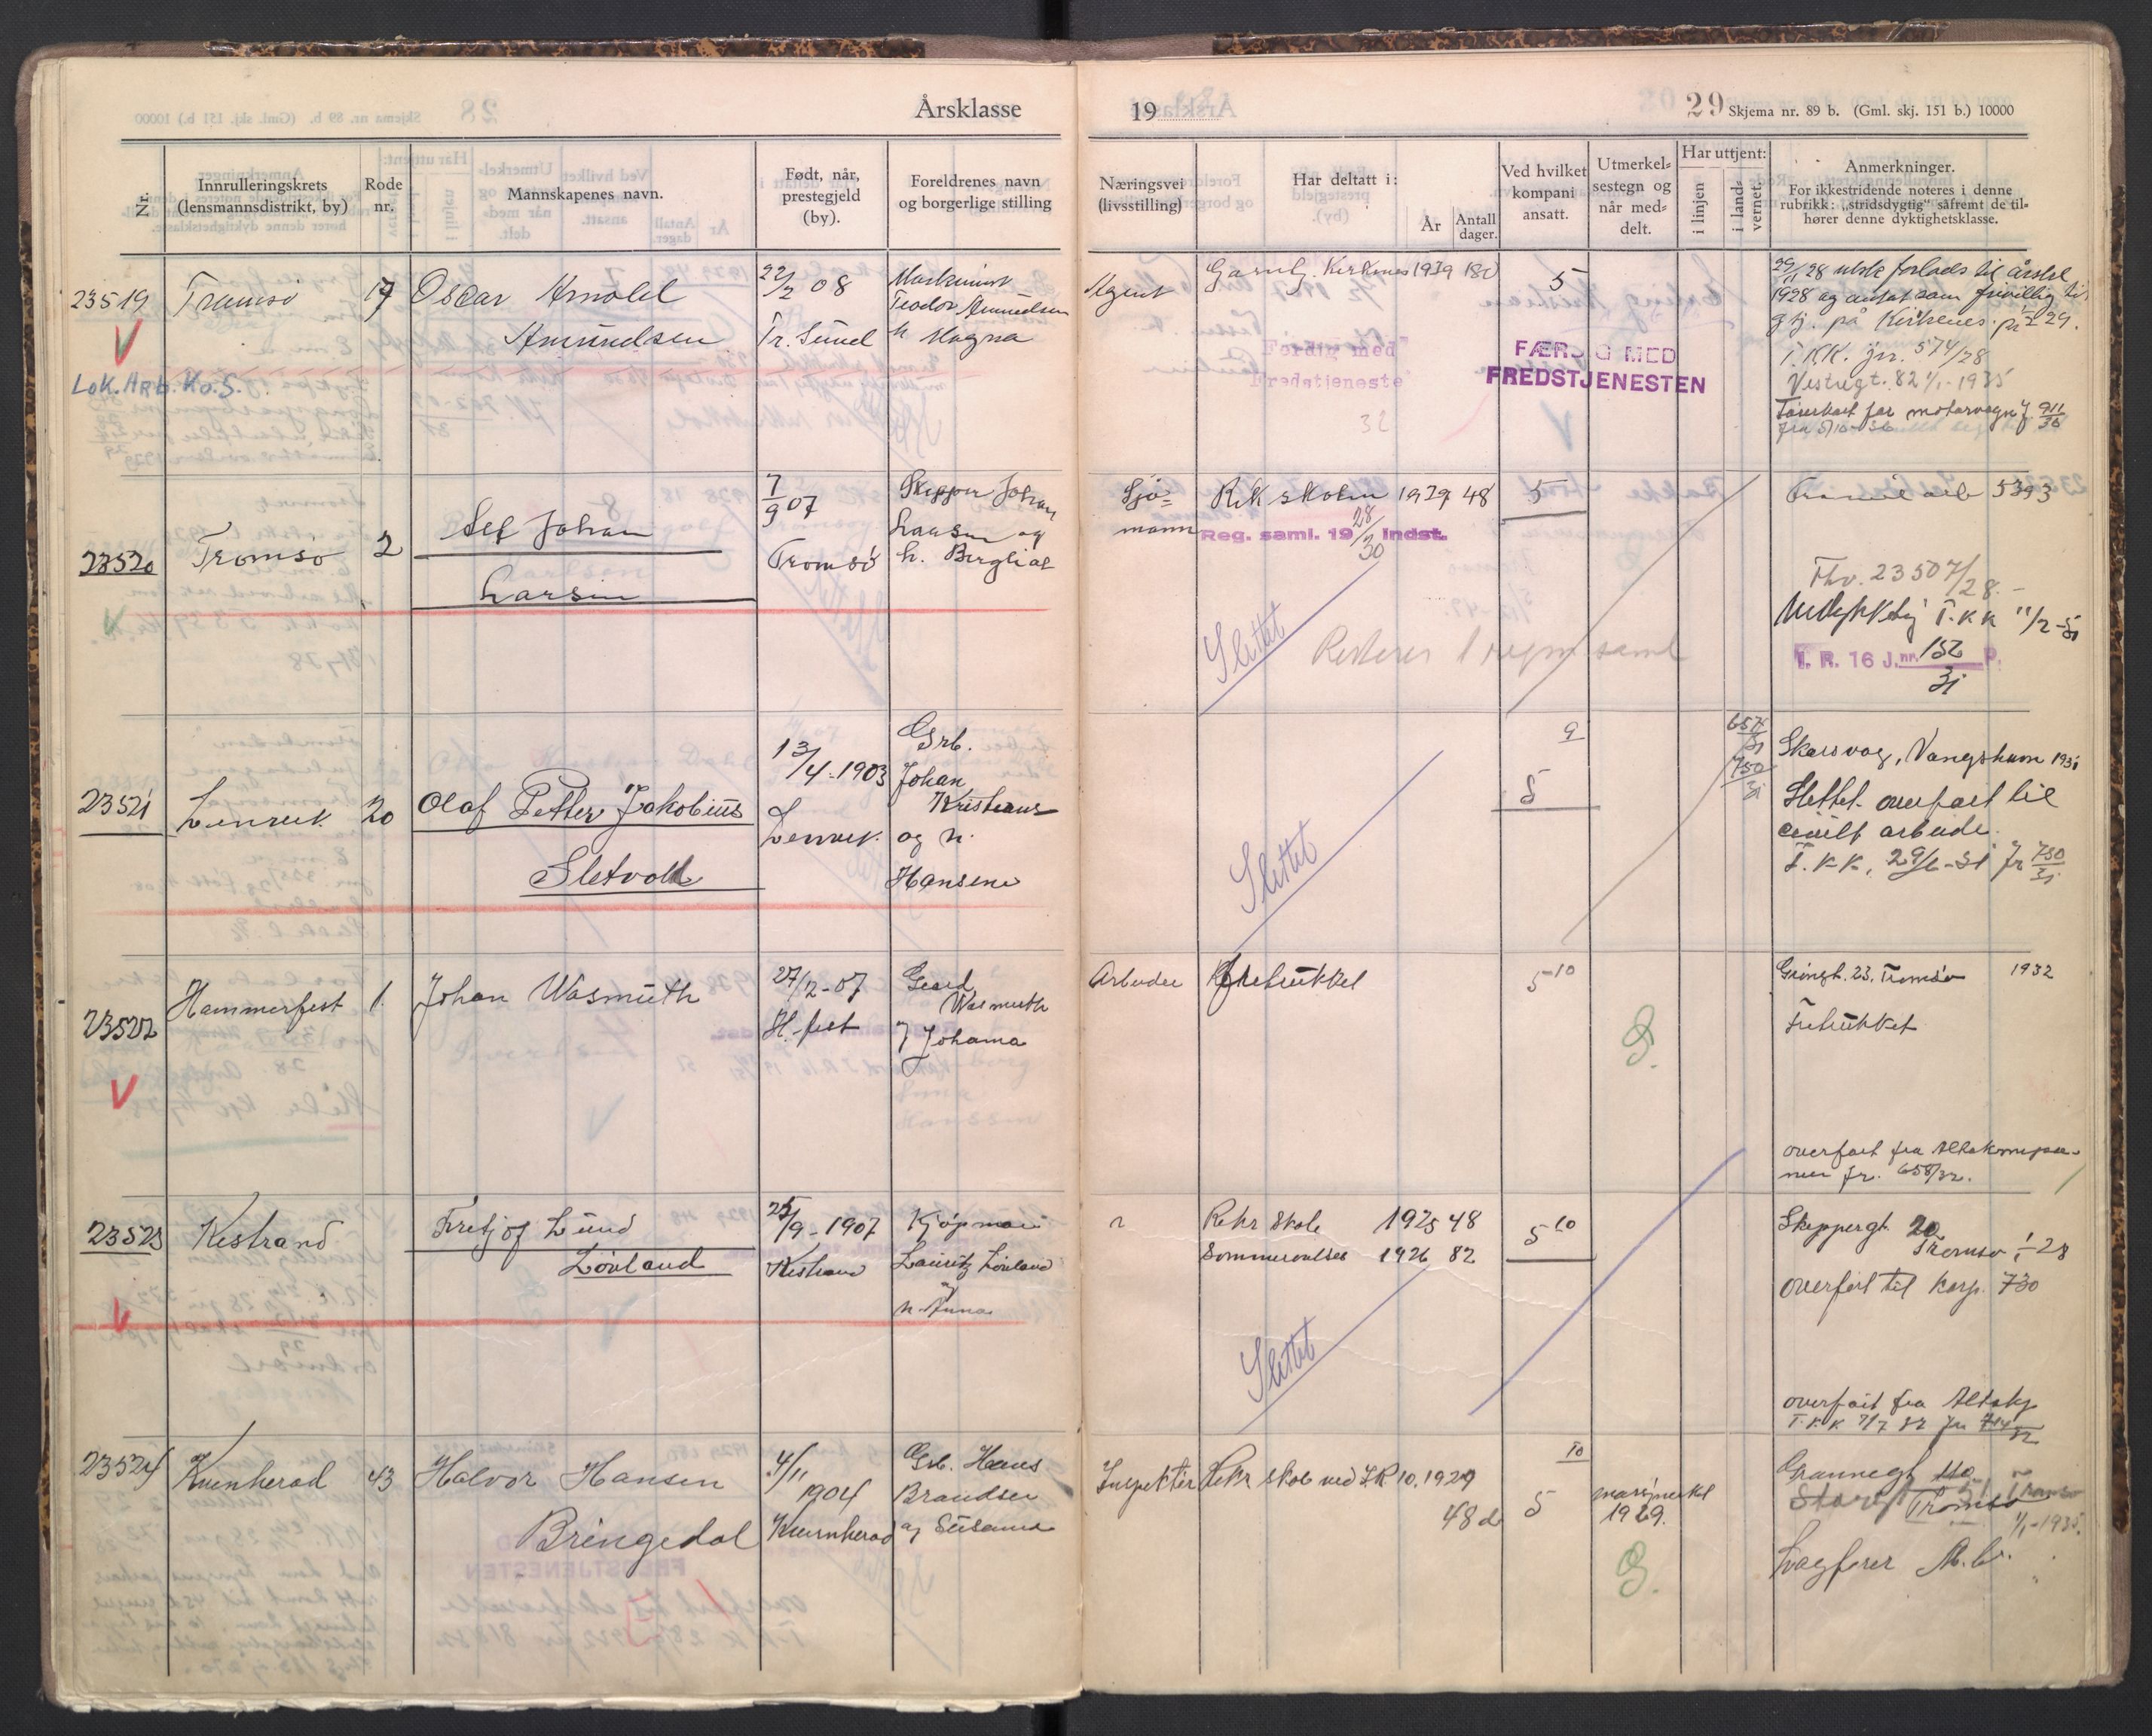 Årsklasse
19
29 Skjema nr. 89 b. (Gml. skj. 151 b.) 10000
Nr.
Innrulleringskrets
(lensmannsdistrikt, by)
Rode
nr.
Mannskapenes navn.
Født, når,
prestegjeld
(by).
Foreldrenes navn
og borgerlige stilling
Næringsvei
(livsstilling)
Har deltatt i:
År
Antall
dager.
Ved hvilket
kompani
ansatt.
Utmerkel=
sestegn og
når med=
delt.
Har uttjent:
i linjen
i land=
vernet.
Anmerkninger.
For ikkestridende noteres i denne
rubrikk: „stridsdygtig" såfremt de til=
hører denne dyktighetsklasse.
23519
Tromsö
17
Oscar Arnold
Amundsen
22/2 08
Tr. Sund
Maskinist
Teodor Amundsen
h Magna
Lok. Arb. Ko. S.
Agent
Garn g. Kirkenes 1929 180
5
Ferdig med
Fredstjeneste
32
FÆRDIG MED
FREDSTJENESTEN
1928 og antat som frivillig til
gtj. på Kirkenes. pr 29.
T.KK. jnr. 574/28
Vestregt. 82 1/1-1935
Förerkort for motorvogn J. 911/36
fra 5/10-36
23520
Tromsö
2
Johan
Larsen
7/9 07
Tromsö
Skipper Johan
Larsen og
h. Bergliot
Sjö=
mann
Rek skolen 1929 48
5
Reg. saml. 19 28/30 indst.
Slettet
Resterer 1 regm saml
5393
Fhv. 23507/28.-
Udygktig T.K.K 11/2-31
I. R. 16 J. nr. 152 P.
31
23521
Lenvik
20
Olaf Petter Jakobius
Sletvold
13/4-1903
Lenvik.
Grb.
Johan
Kristians
og h.
Hansene
Slettet
9
5
657/31
750/31
Skarsvog, Vangshavn 1931
Slettet. overfört til
civilt arbeide.
T.K.K. 29/6-31 Jr 750/31
23522
Hammerfest
1.
Johan Wasmuth
27/2-07
H.fest
Geard
Wasmuth
og Johanna
Arbeider
Frebrukket
5 10
G.
Grönngt. 23. Tromsö 1932
overfört fra Altakompa-
nier Jr. 658/32.
23523
Kistrand
Fritjof Lund
Lövland
25/9-1907
Kistrand
Kjöpmann
Lauritz Lövland
og
h. Anna
"
Rekr skole 1925 48
Sommerövelser 1926 82
5 10
Slettet
Skippergt. 20
Tromsö 1/1-28
Overfört til Korp. 730
overfört fra Altakp
T.K.K 7/7 32 Jnr 714/32
23524
Kvinherad
43
Halvor Hansen
Bringedal
4/11
1904
Kvinherad
Grb. Hans
Brandser
og Susanna
Inspektör
Rekr skole ved I.R 10. 1929
48 d
10
5
marsjmerket
1929.
G.
Grönnegt 110
Storgt
Tromsö
1/1-1935.
Lagförer M.G.